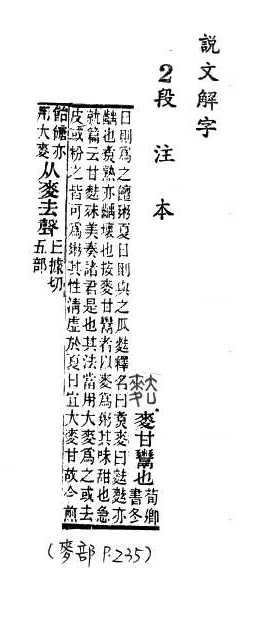 説文解字
2段注本
麮 麥甘鬻也 荀卿
書冬
日則爲之饘粥夏日則與之瓜麮釋名曰煮麥曰麮麮亦
齲也煮熟亦齲壞也按麥甘鬻者以麥爲粥其味甜也急
就篇云甘麮殊美奏諸君是也其法當用大麥爲之或去
皮或粉之皆可爲粥其性清虛於夏日宜大麥甘故今煎
飴餹亦
用大麥 从麥去聲 丘據切
五部
(麥部 P.235)